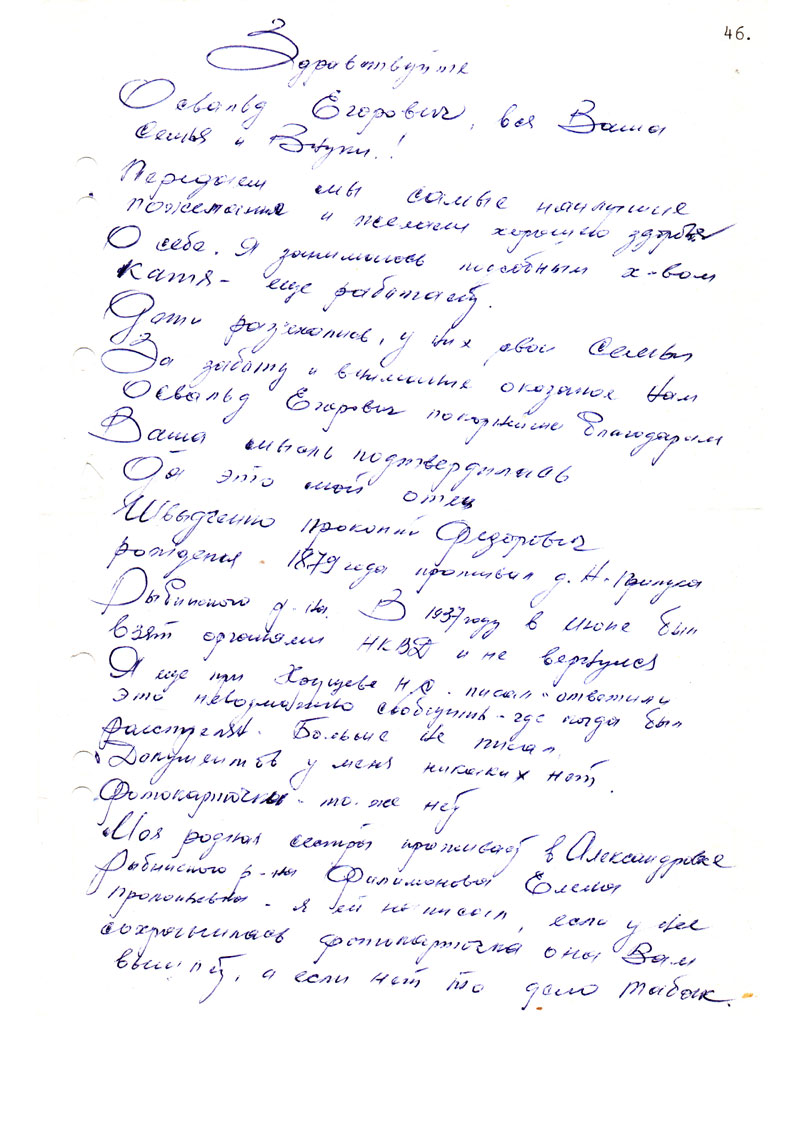 46.
Здравствуйте
Освальд Егорович, вся Ваша
семья и Внуки.!
Передаем мы самые наилучшие
пожелания и желаем хорошего здоровья
О себе. Я занимаюсь пособным х-вом
Катя - еще работает.
Дети разъехались, у них свои семьи
За заботу и внимание оказаное Нам
Освальд Егорович покорнейше благодарим
Ваша мысль подтвердилась
Да это мой отец
Швыдченко Прокопий Федорович
рождения 1879 года проживал д. Н-Прилука
Рыбинского р-на. В 1937 году в июне был
взят органами НКВД и не вернулся
Я еще при Хрущеве Н.С. писал - ответили
это невозможно сообщить - где когда был
расстрелян. Больше не писал.
Документов у меня никаких нет.
Фотокарточки - то же нет
Моя родная сестра проживает в Александровке
Рыбинского р-на Филимонова Елена
Прокопьевна - я ей написал, если у нее
сохранилась фотокарточка она Вам
вышлет, а если нет то дело табак.